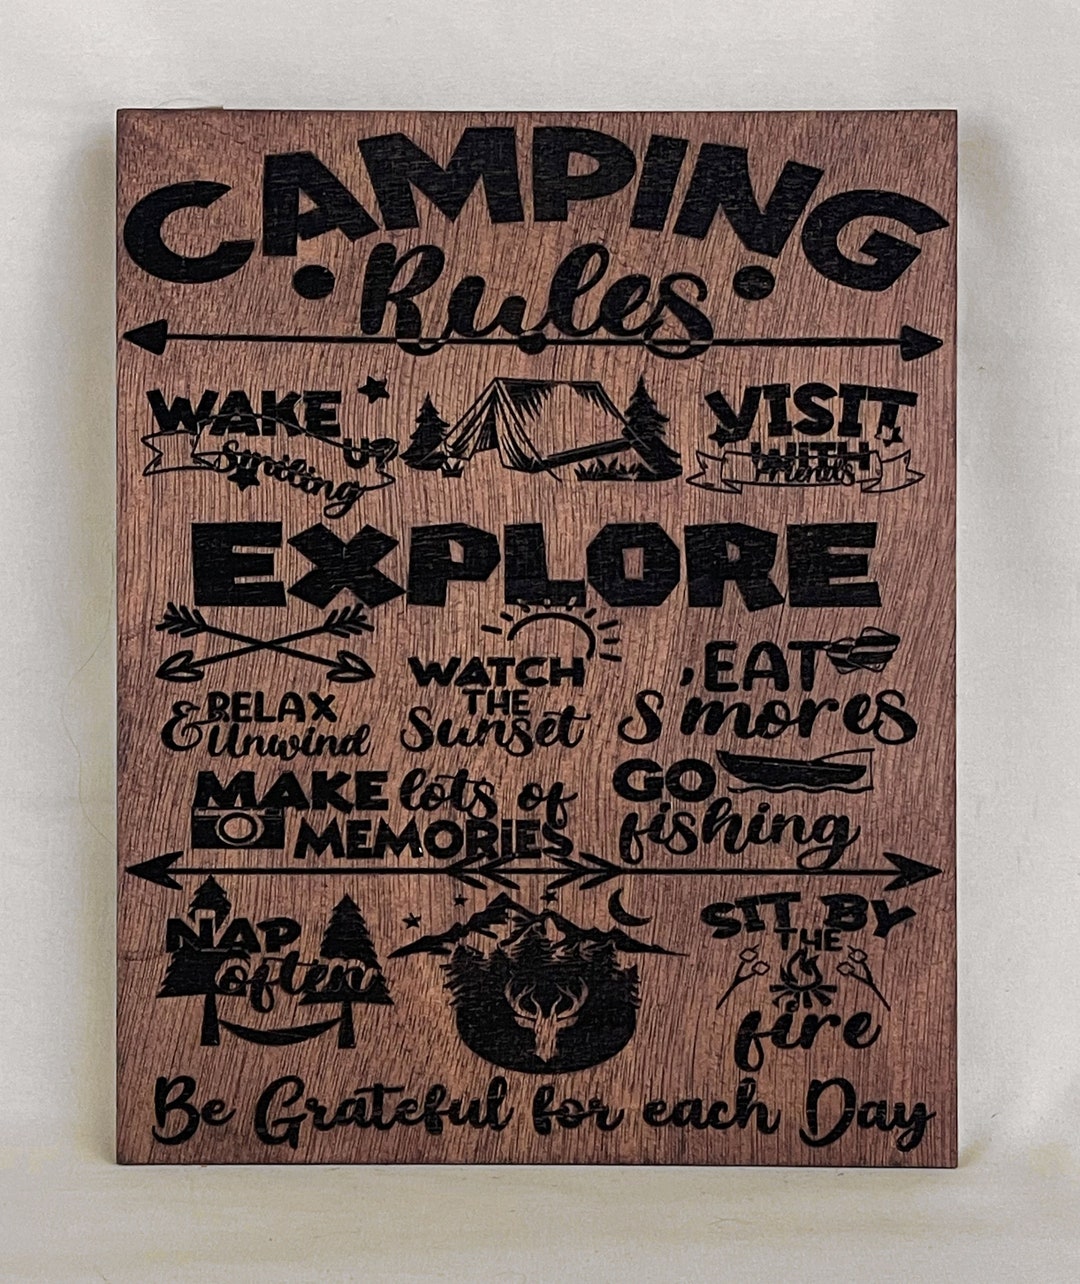 CAMPING
Rules
WAKE
UP
Smiling
VISIT
WITH
Friends
EXPLORE
RELAX
& Unwind
WATCH
THE
Sunset
EAT
S'mores
MAKE lots of
MEMORIES
GO
fishing
NAP
often
SIT BY
THE
fire
Be Grateful for each Day